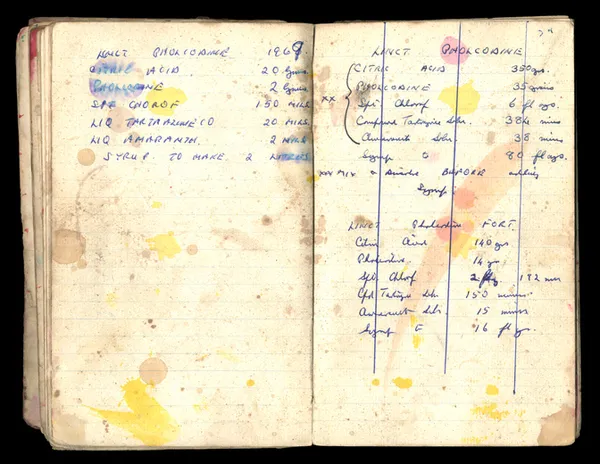 LINCT PHOLCODINE 1969.
CITRIC ACID 20 Gms.
PHOLCODINE 2 Gms
SPT CHOROF 150 MILS
LIQ TARTRAZINE CO 20 MILS.
LIQ AMARANTH. 2 MILS
SYRUP TO MAKE 2 LITRES
LINCT PHOLCODINE
CITRIC ACID 350 grs.
PHOLCODINE 35 grains
XX Spt Chlorof 6 fl ozs.
Compound Tartrazine 384 mins
Amaranth 38 mins
Syrup 80 fl ozs.
XX MIX BEFORE adding
Syrup.
LINCT Pholcodine FORT
Citric Acid 140 grs
Pholcodine 14 grs
Spt Chlorof 2 192 min
Cpd Tartraz 150 minims
Amaranth 15 mins
Syrup 16 fl ozs.